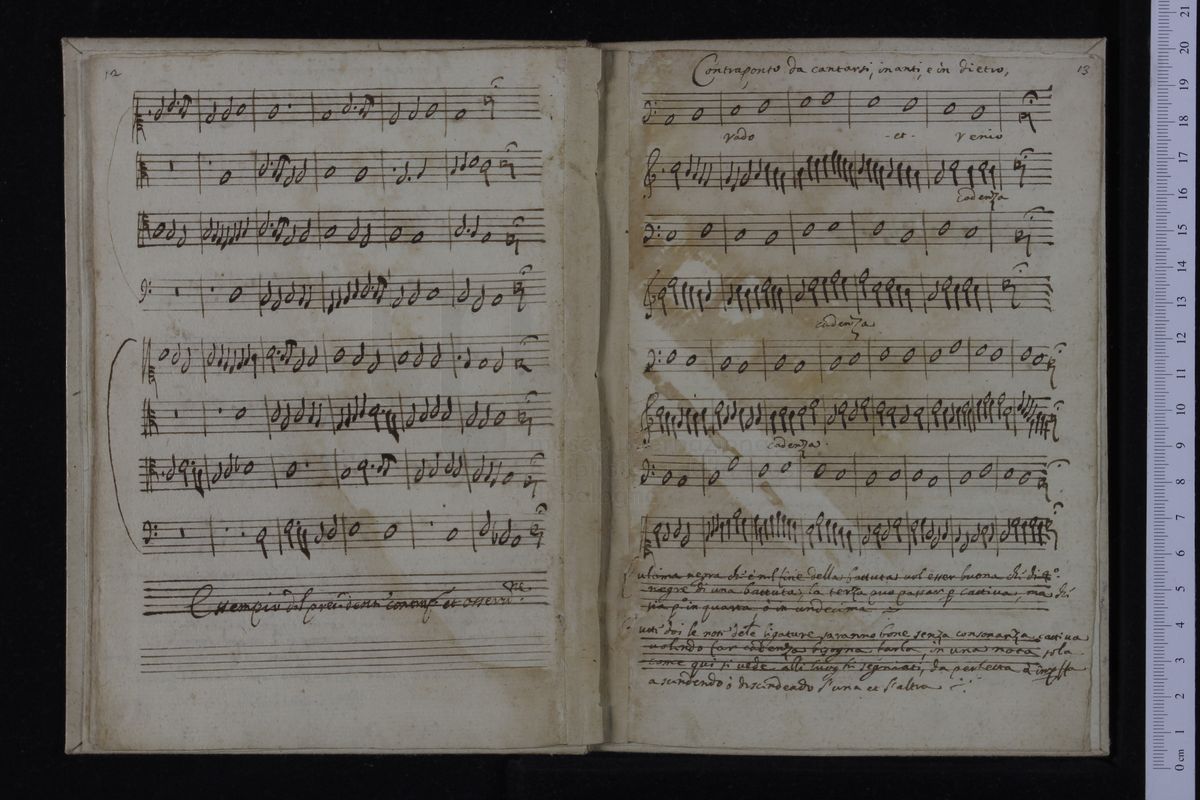 12
Essempio del precedente contrap.to et osserv.ne
Contraponto da cantarsi, inanti, e in dietro,
13
Vado - et - Venio
Cadenza
cadenza
cadenza
ultima negra ch'è nel fine della battuta vol esser buona chi di
negre di una battuta, la terza puo passar p cattiva, ma chi
sia p in quarta o in undecima
tuti doi le note dele ligature saranno bone senza consonanza cattiva
volendo far cadenza bisogna farla, in una nota sola
come qui si vede alli luoghi segnati, da perfetta
ascendendo ò discendendo l'una et l'altra